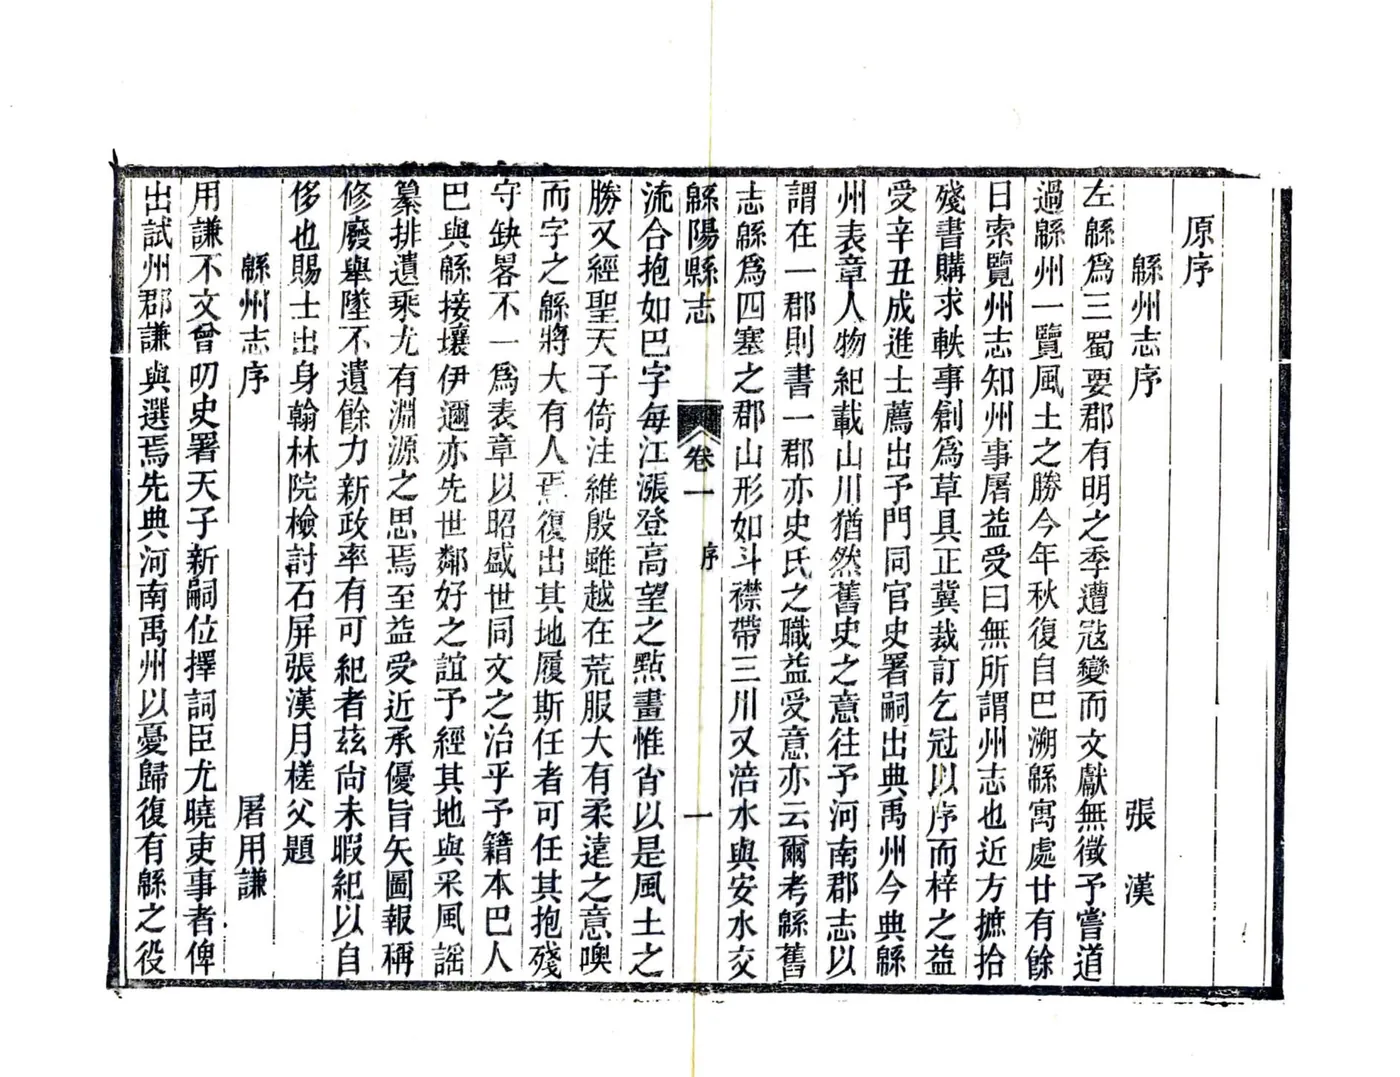 原序
緜州志序　張　漢
左緜爲三蜀要郡有明之季遭冦變而文獻無徵予嘗道
過緜州一覽風土之勝今年秋復自巴溯緜寓處廿有餘
日索覽州志知州事屠益受曰無所謂州志也近方摭拾
殘書購求軼事創爲草具正冀裁訂乞冠以序而梓之益
受辛丑成進士薦出予門同官史署嗣出典禹州今典緜
州表章人物紀載山川猶然舊史之意往予河南郡志以
謂在一郡則書一郡亦史氏之職益受意亦云爾考緜舊
志緜爲四塞之郡山形如斗襟帶三川又涪水與安水交
緜陽縣志　卷一　序　一
流合抱如巴字每江漲登高望之點畫惟肖以是風土之
勝又經聖天子倚注維殷雖越在荒服大有柔遠之意噢
而字之緜將大有人焉復出其地履斯任者可任其抱殘
守缺畧不一爲表章以昭盛世同文之治乎予籍本巴人
巴與緜接壤伊邇亦先世鄰好之誼予經其地與采風謡
纂排遺乘尤有淵源之思焉至益受近承優旨矢圖報稱
修廢舉墜不遺餘力新政率有可紀者茲尙未暇紀以自
侈也賜士出身翰林院檢討石屏張漢月槎父題
緜州志序　屠用謙
用謙不文曾叨史署天子新嗣位擇詞臣尤曉吏事者俾
出試州郡謙與選焉先典河南禹州以憂歸復有緜之役